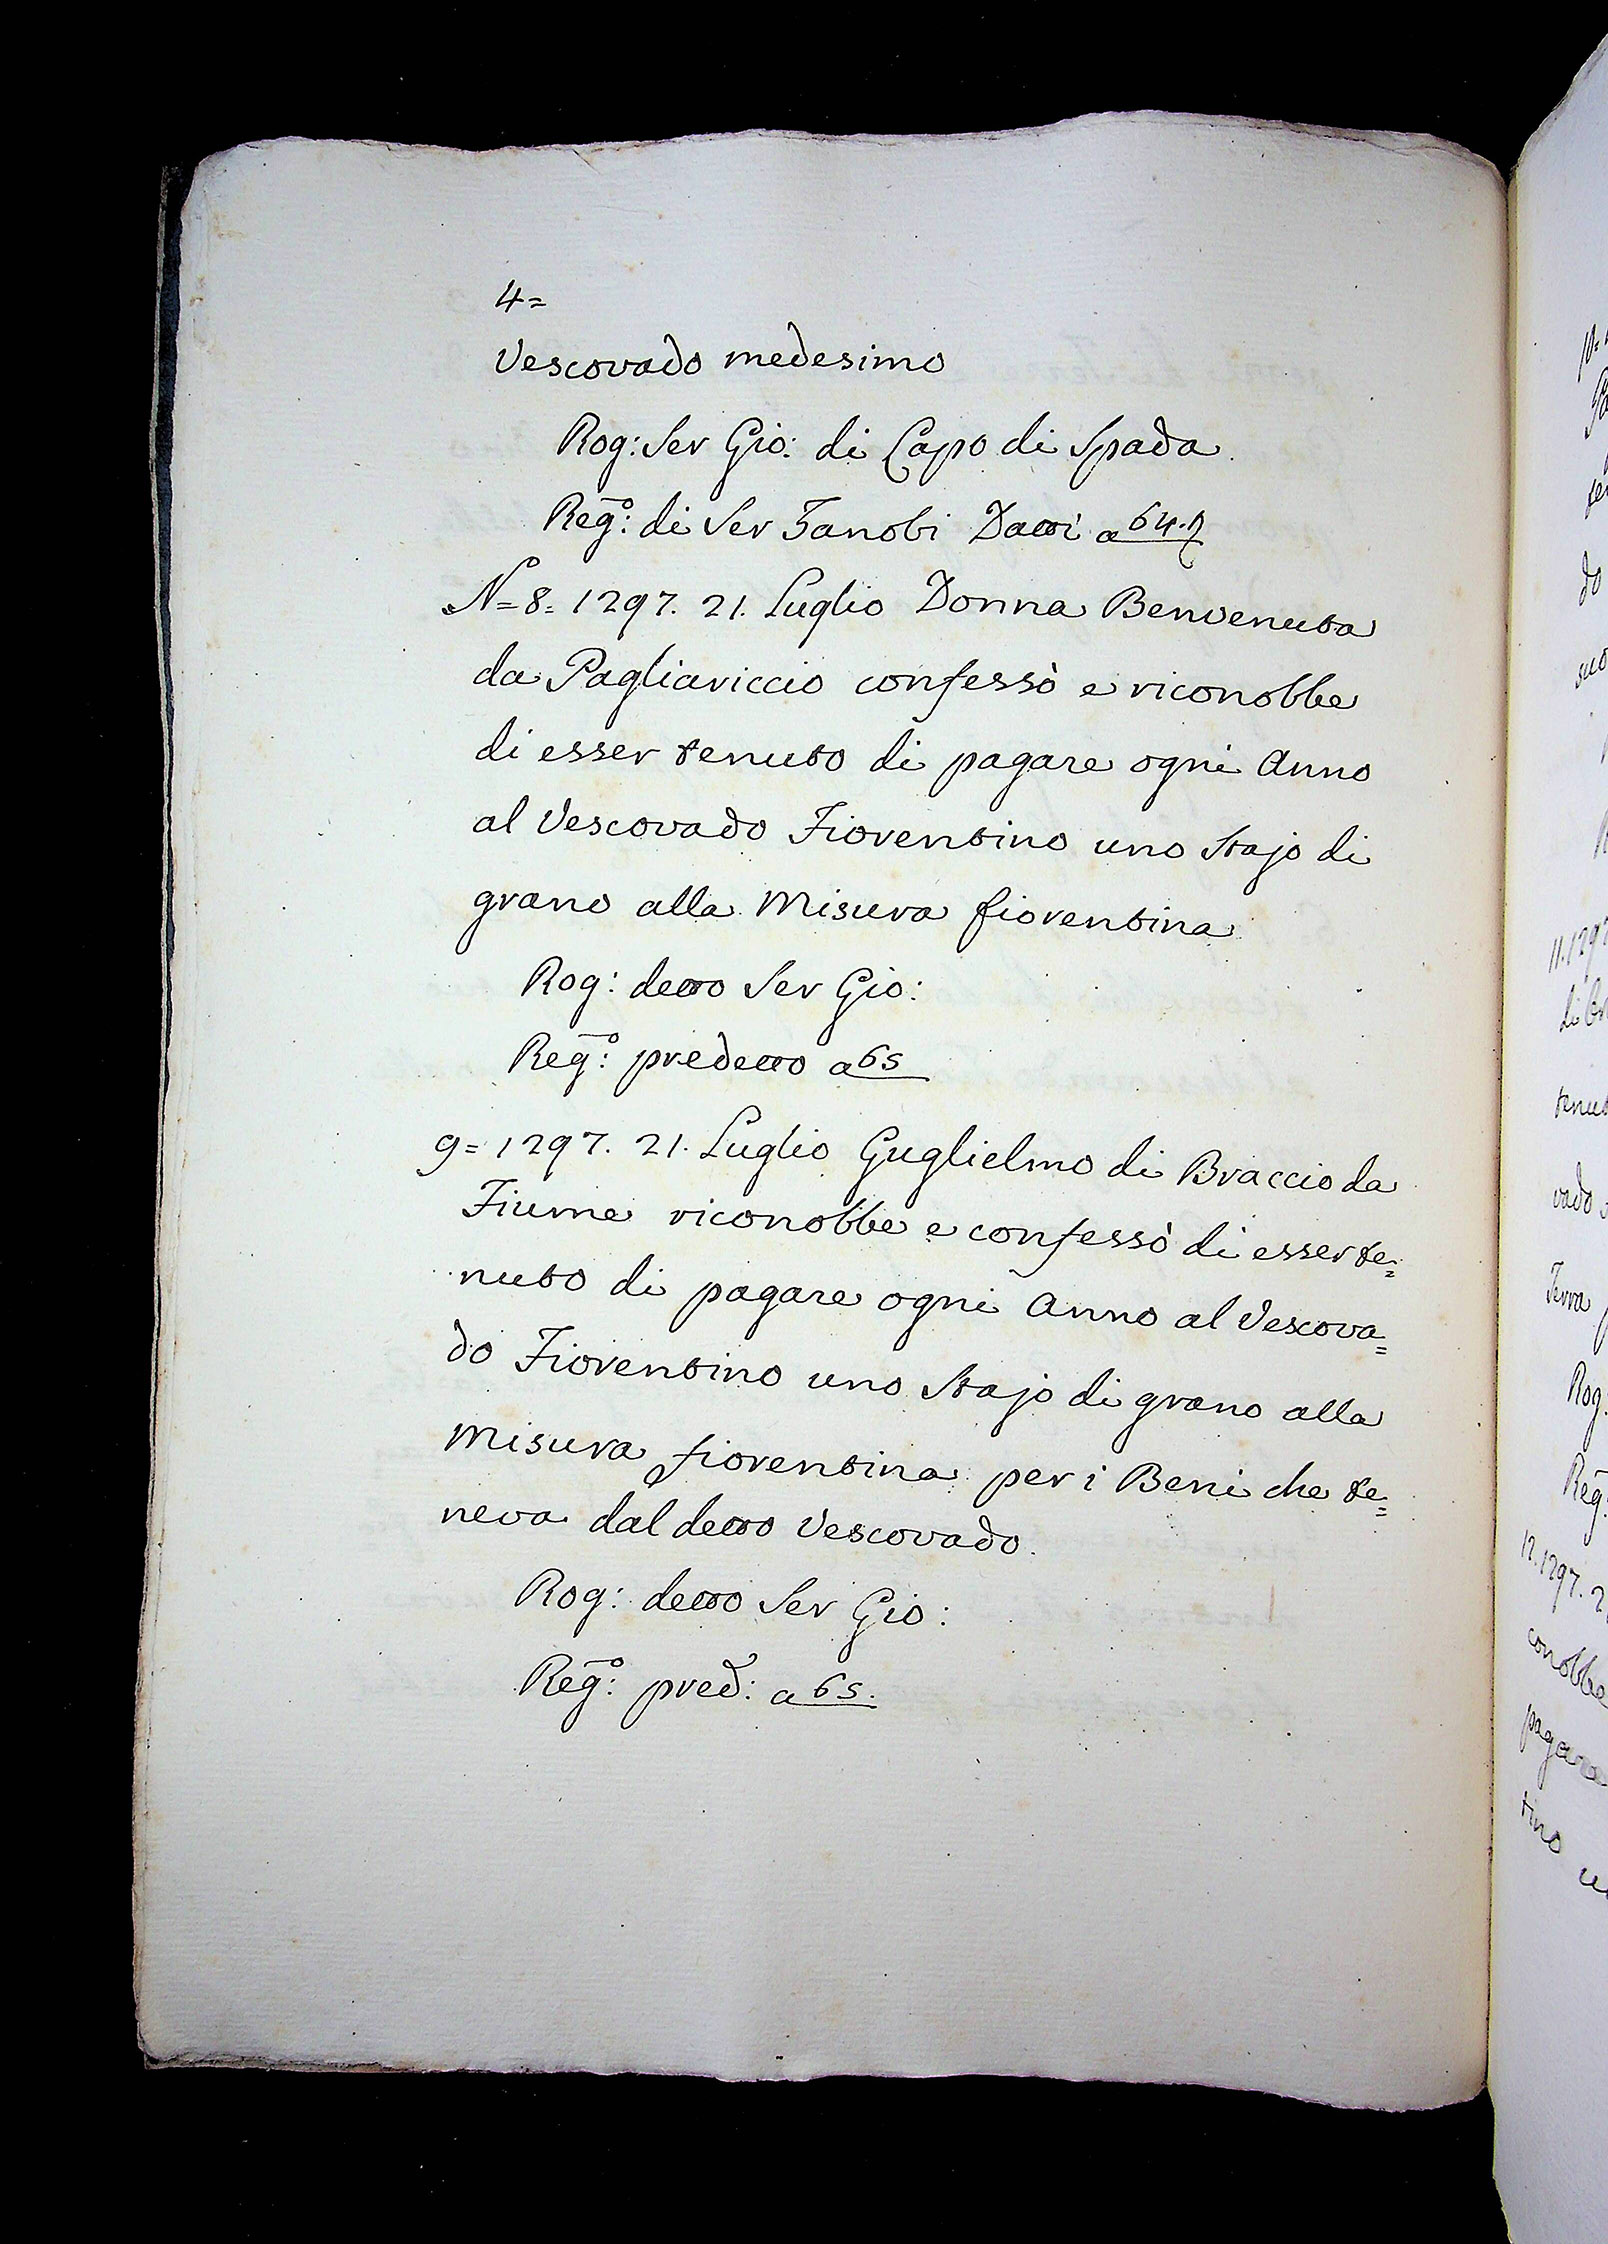 4=
Vescovado medesimo
Rog: Ser Gio: di Capo di Spada
Reg.º: di Ser Zanobi Datti a 64.
N=8= 1297. 21. Luglio Donna Benvenuta
da Pagliariccio confessò e riconobbe
di esser tenuto di pagare ogni Anno
al Vescovado Fiorentino uno Stajo di
grano alla Misura fiorentina
Rog: detto Ser Gio:
Reg.º: predetto a 65
9= 1297. 21. Luglio Guglielmo di Braccio da
Fiume riconobbe e confessò di esser te=
nuto di pagare ogni Anno al Vescova=
do Fiorentino uno Stajo di grano alla
Misura fiorentina per i Beni che te=
neva dal detto Vescovado.
Rog: detto Ser Gio:
Reg.º: pred: a 65.